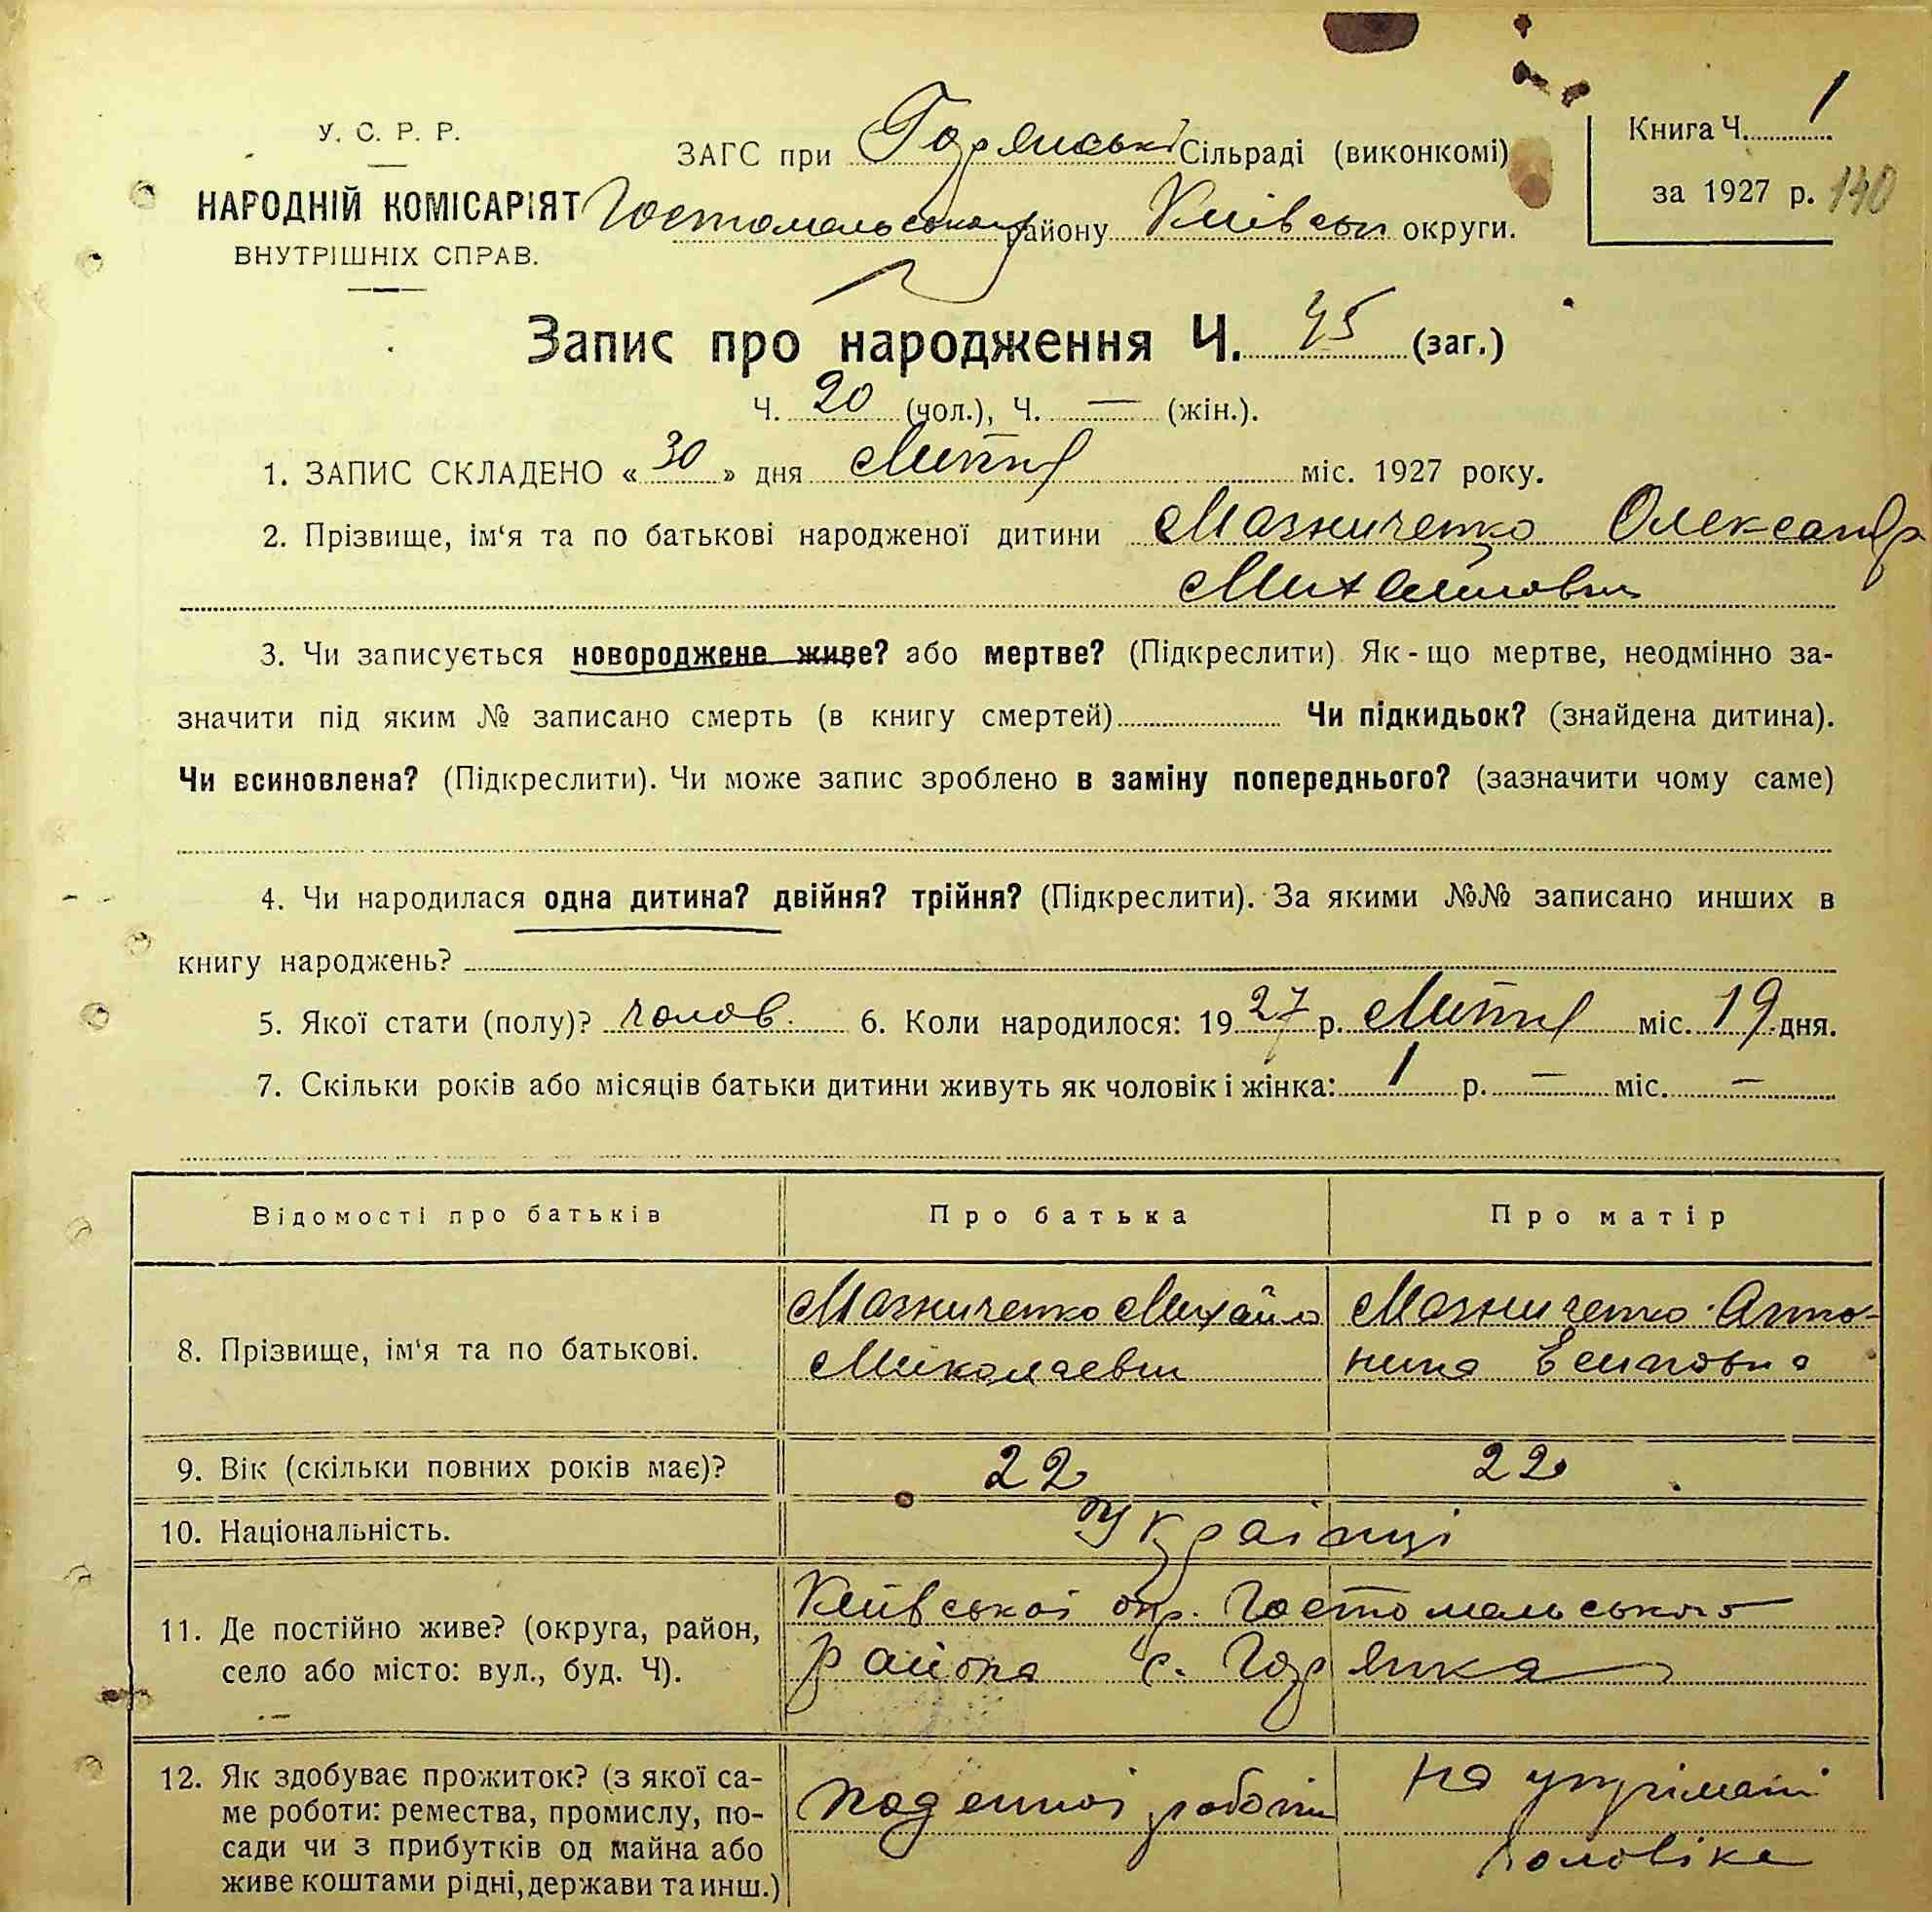 У. С. Р. Р.
НАРОДНІЙ КОМІСАРІЯТ
ВНУТРІШНІХ СПРАВ.
ЗАГС при Горянській Сільраді (виконкомі)
Гостомельського району Київськ округи.
Книга Ч. 1
за 1927 р. 140
Запис про народження Ч. 45 (заг.)
Ч. 20 (чол.), Ч. — (жін.).
1. ЗАПИС СКЛАДЕНО «30» дня Липня міс. 1927 року.
2. Прізвище, ім‘я та по батькові народженої дитини Мазниченко Олександр
Михайлович
3. Чи записується новороджене живе? або мертве? (Підкреслити) Як-що мертве, неодмінно за-
значити під яким № записано смерть (в книгу смертей) Чи підкидьок? (знайдена дитина).
Чи всиновлена? (Підкреслити). Чи може запис зроблено в заміну попереднього? (зазначити чому саме)
4. Чи народилася одна дитина? двійня? трійня? (Підкреслити). За якими №№ записано инших в
книгу народжень?
5. Якої стати (полу)? чолов. 6. Коли народилося: 1927 р. Липня міс. 19 дня.
7. Скільки років або місяців батьки дитини живуть як чоловік і жінка: 1 р. — міс. —
Відомості про батьків Про батька Про матір
8. Прізвище, ім‘я та по батькові.
Мазниченко Михайло
Миколаевич
Мазниченко Анто-
нина Есиповна
9. Вік (скільки повних років має)? 22 22
10. Національність. Українці
11. Де постійно живе? (округа, район,
село або місто: вул., буд. Ч).
Київської окр. Гостомельського
района с. Горянка
12. Як здобуває прожиток? (з якої са-
ме роботи: ремества, промислу, по-
сади чи з прибутків од майна або
живе коштами рідні, держави та инш.)
поденної роботи
на утрімані
чоловіка